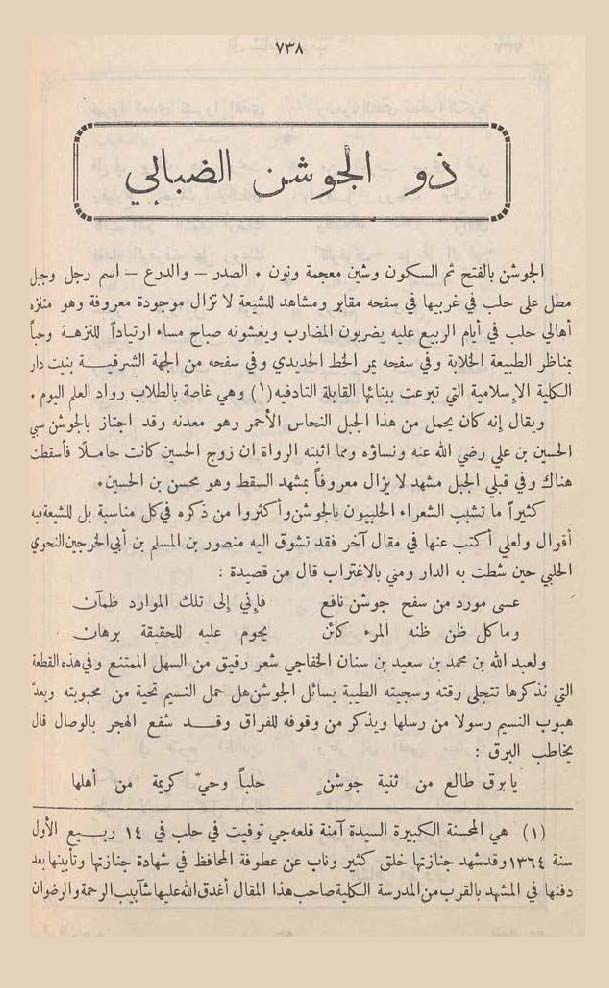 ٧٣٨
ذو الجوشن الضبابي
الجوشن بالفتح ثم السكون وشين معجمة ونون • الصدر – والدرع – اسم رجل وجبل
مطل على حلب في غربيها في سفحه مقابر ومشاهد للشيعة لا تزال موجودة معروفة وهو متنزه
أهالي حلب في أيام الربيع عليه يضربون المضارب ويغشونه صباح مساء ارتياداً للنزهة وحباً
بمناظر الطبيعة الخلابة وفي سفحه يمر الخط الحديدي وفي سفحه من الجهة الشرقية بنيت دار
الكلية الإسلامية التي تبرعت ببنائها القابلة التادفيه (١) وهي غاصة بالطلاب رواد العلم اليوم •
ويقال إنه كان يحمل من هذا الجبل النحاس الأحمر وهو معدنه وقد اجتاز بالجوشن سبي
الحسين بن علي رضي الله عنه ونساؤه ومما اثبته الرواة ان زوج الحسين كانت حاملاً فأسقطت
هناك وفي قبلي الجبل مشهد لا يزال معروفاً بمشهد السقط وهو محسن بن الحسين •
كثيراً ما تشبب الشعراء الحلبيون بالجوشن وأكثروا من ذكره في كل مناسبة بل للشيعة فيه
أقوال ولعلي أكتب عنها في مقال آخر فقد تشوق اليه منصور بن المسلم بن أبي الخرجين النحوي
الحلبي حين شطت به الدار ومني بالاغتراب قال من قصيدة :
عسى مورد من سفح جوشن نافع فإني إلى تلك الموارد ظمآن
وما كل ظن ظنه المرء كائن يحوم عليه للحقيقة برهان
ولعبد الله بن محمد بن سعيد بن سنان الخفاجي شعر رقيق من السهل الممتنع وفي هذه القطعة
التي نذكرها تتجلى رقته وسجيته الطيبة يسائل الجوشن هل حمل النسيم تحية من محبوبته ويعدّ
هبوب النسيم رسولا من رسلها ويذكر من وقوفه للفراق وقد شفع الهجر بالوصال قال
يخاطب البرق :
يابرق طالع من ثنية جوشنٍ حلباً وحيّ كريمة من أهلها
(١) هي المحسنة الكبيرة السيدة آمنة قلعه جي توفيت في حلب في ١٤ ربيع الأول
سنة ١٣٦٤ وقد شهد جنازتها خلق كثير وناب عن عطوفة المحافظ في شهادة جنازتها وتأبينها بعد
دفنها في المشهد بالقرب من المدرسة الكلية صاحب هذا المقال أغدق الله عليها شآبيب الرحمة والرضوان